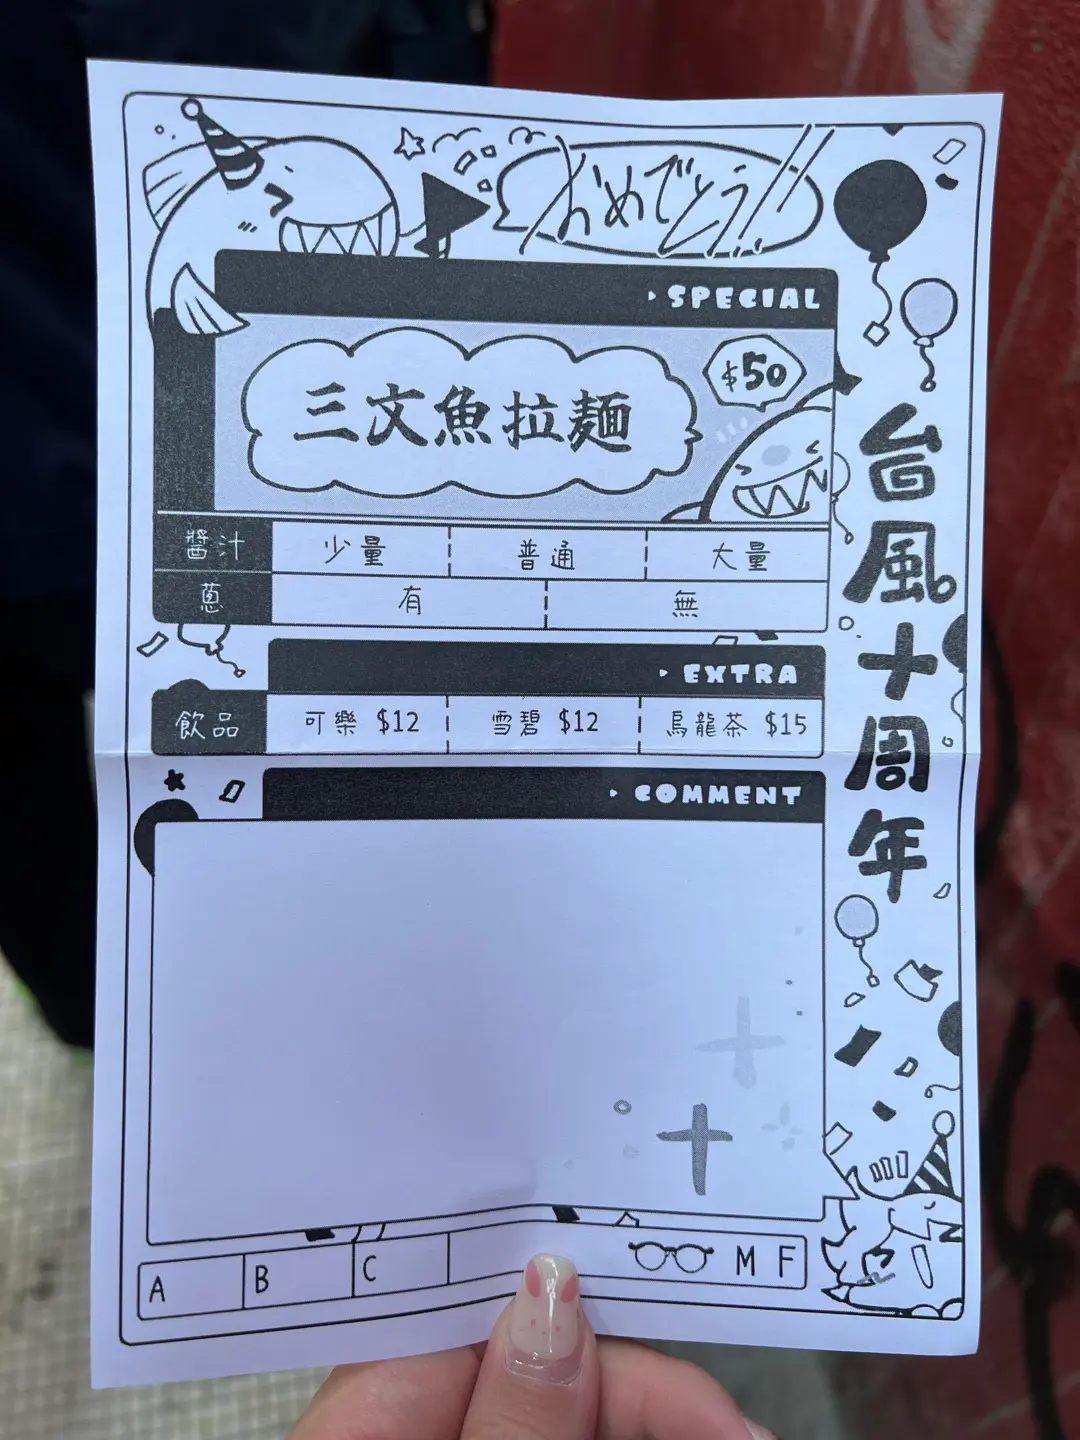 おめでとう!!
SPECIAL
$50
三文魚拉麵
醬汁 少量 普通 大量
蔥 有 無
EXTRA
飲品 可樂 $12 雪碧 $12 烏龍茶 $15
COMMENT
A B C M F
台風十周年